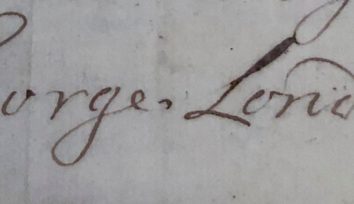 orge. Lon